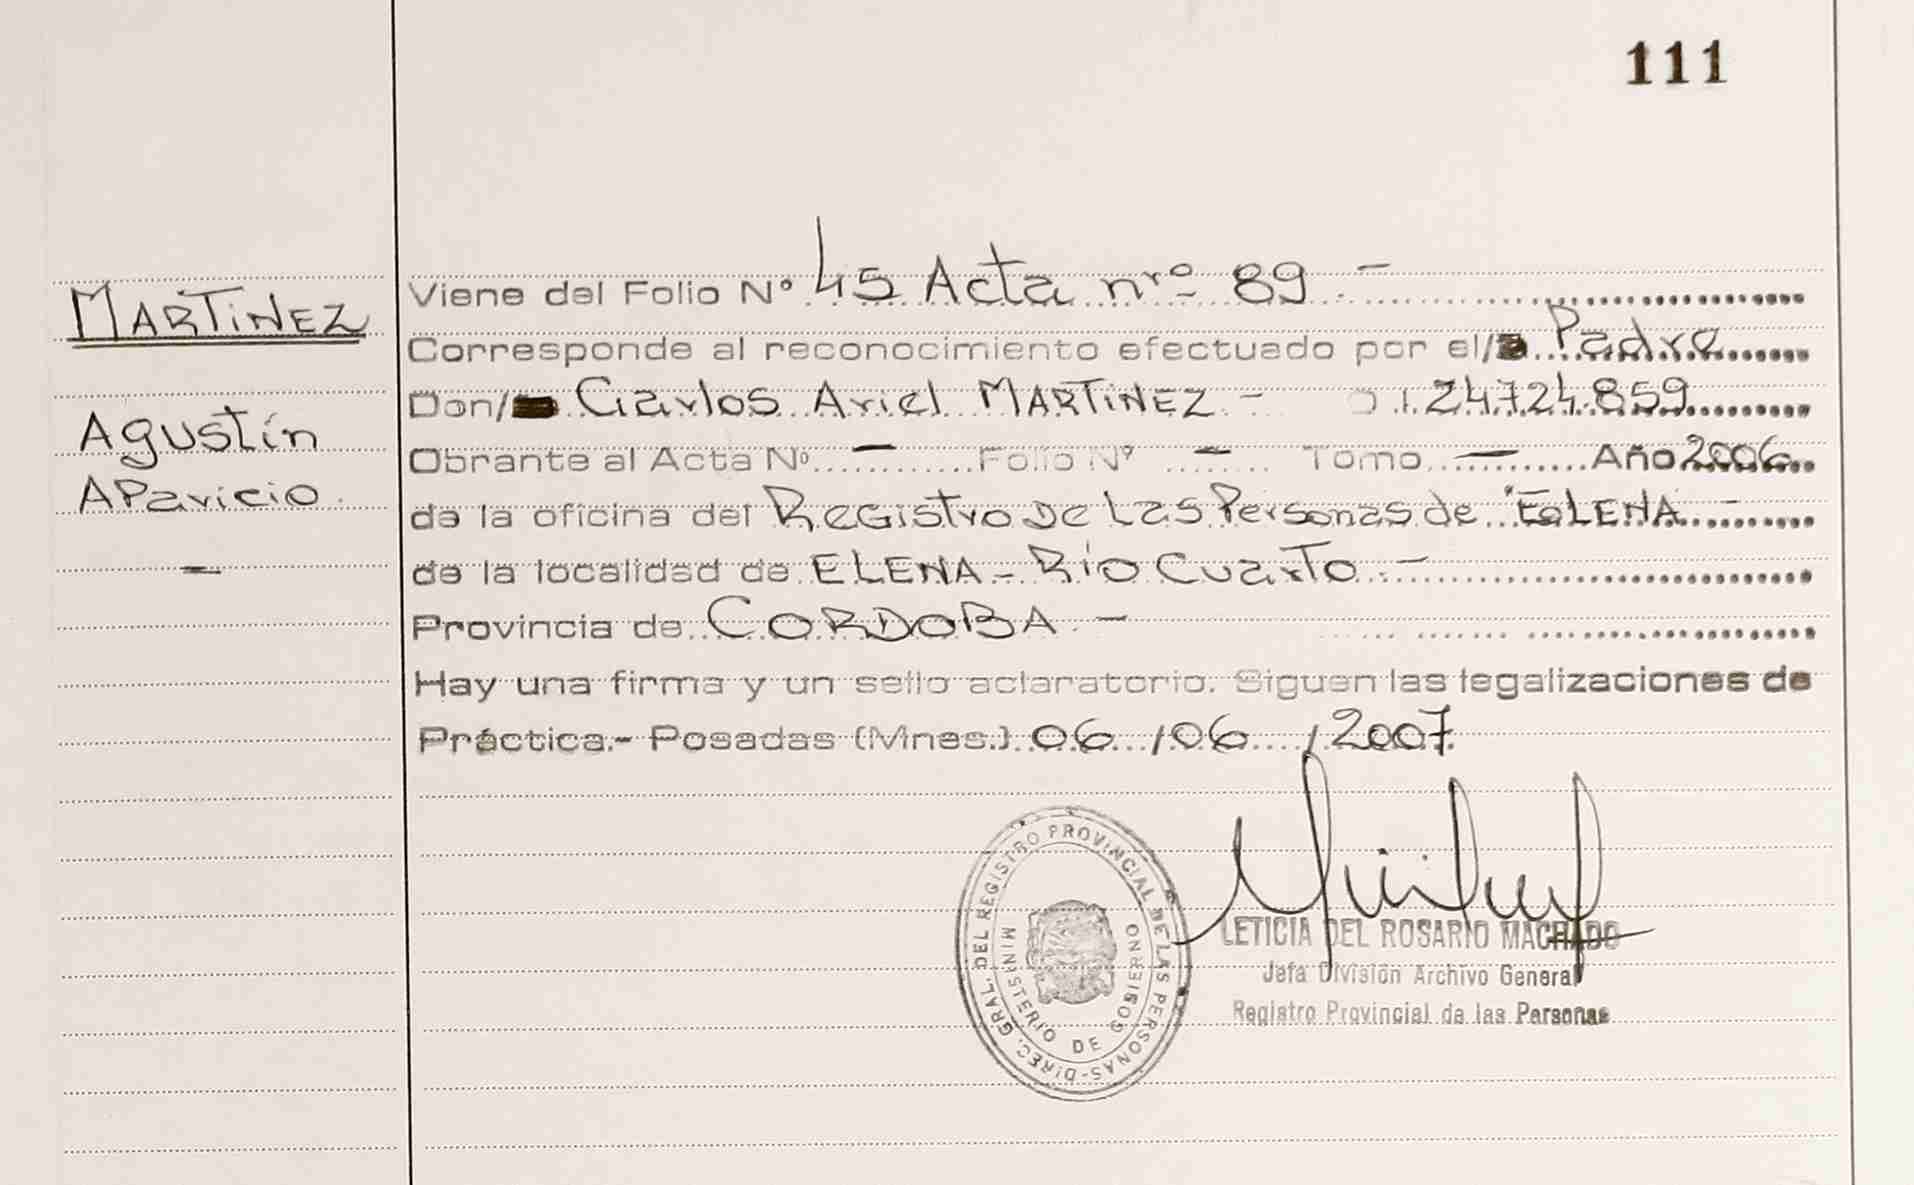 111
MARTINEZ
Agustín
Aparicio.
-
Viene del Folio Nº 45 Acta nrº 89 -
Corresponde al reconocimiento efectuado por el/ Padre
Don/ Carlos Ariel MARTINEZ - 24.724.859
Obrante al Acta Nº - Folio Nº - Tomo - Año 2006
de la oficina del Registro De Las Personas de ELENA -
de la localidad de ELENA - Río Cuarto -
Provincia de CORDOBA -
Hay una firma y un sello aclaratorio. Siguen las legalizaciones de
Práctica.- Posadas (Mnes.) 06 / 06 / 2007
DIREC. GRAL. DEL REGISTRO PROVINCIAL DE LAS PERSONAS-
MINISTERIO DE GOBIERNO
LETICIA DEL ROSARIO MACHADO
Jefa División Archivo General
Registro Provincial de las Personas